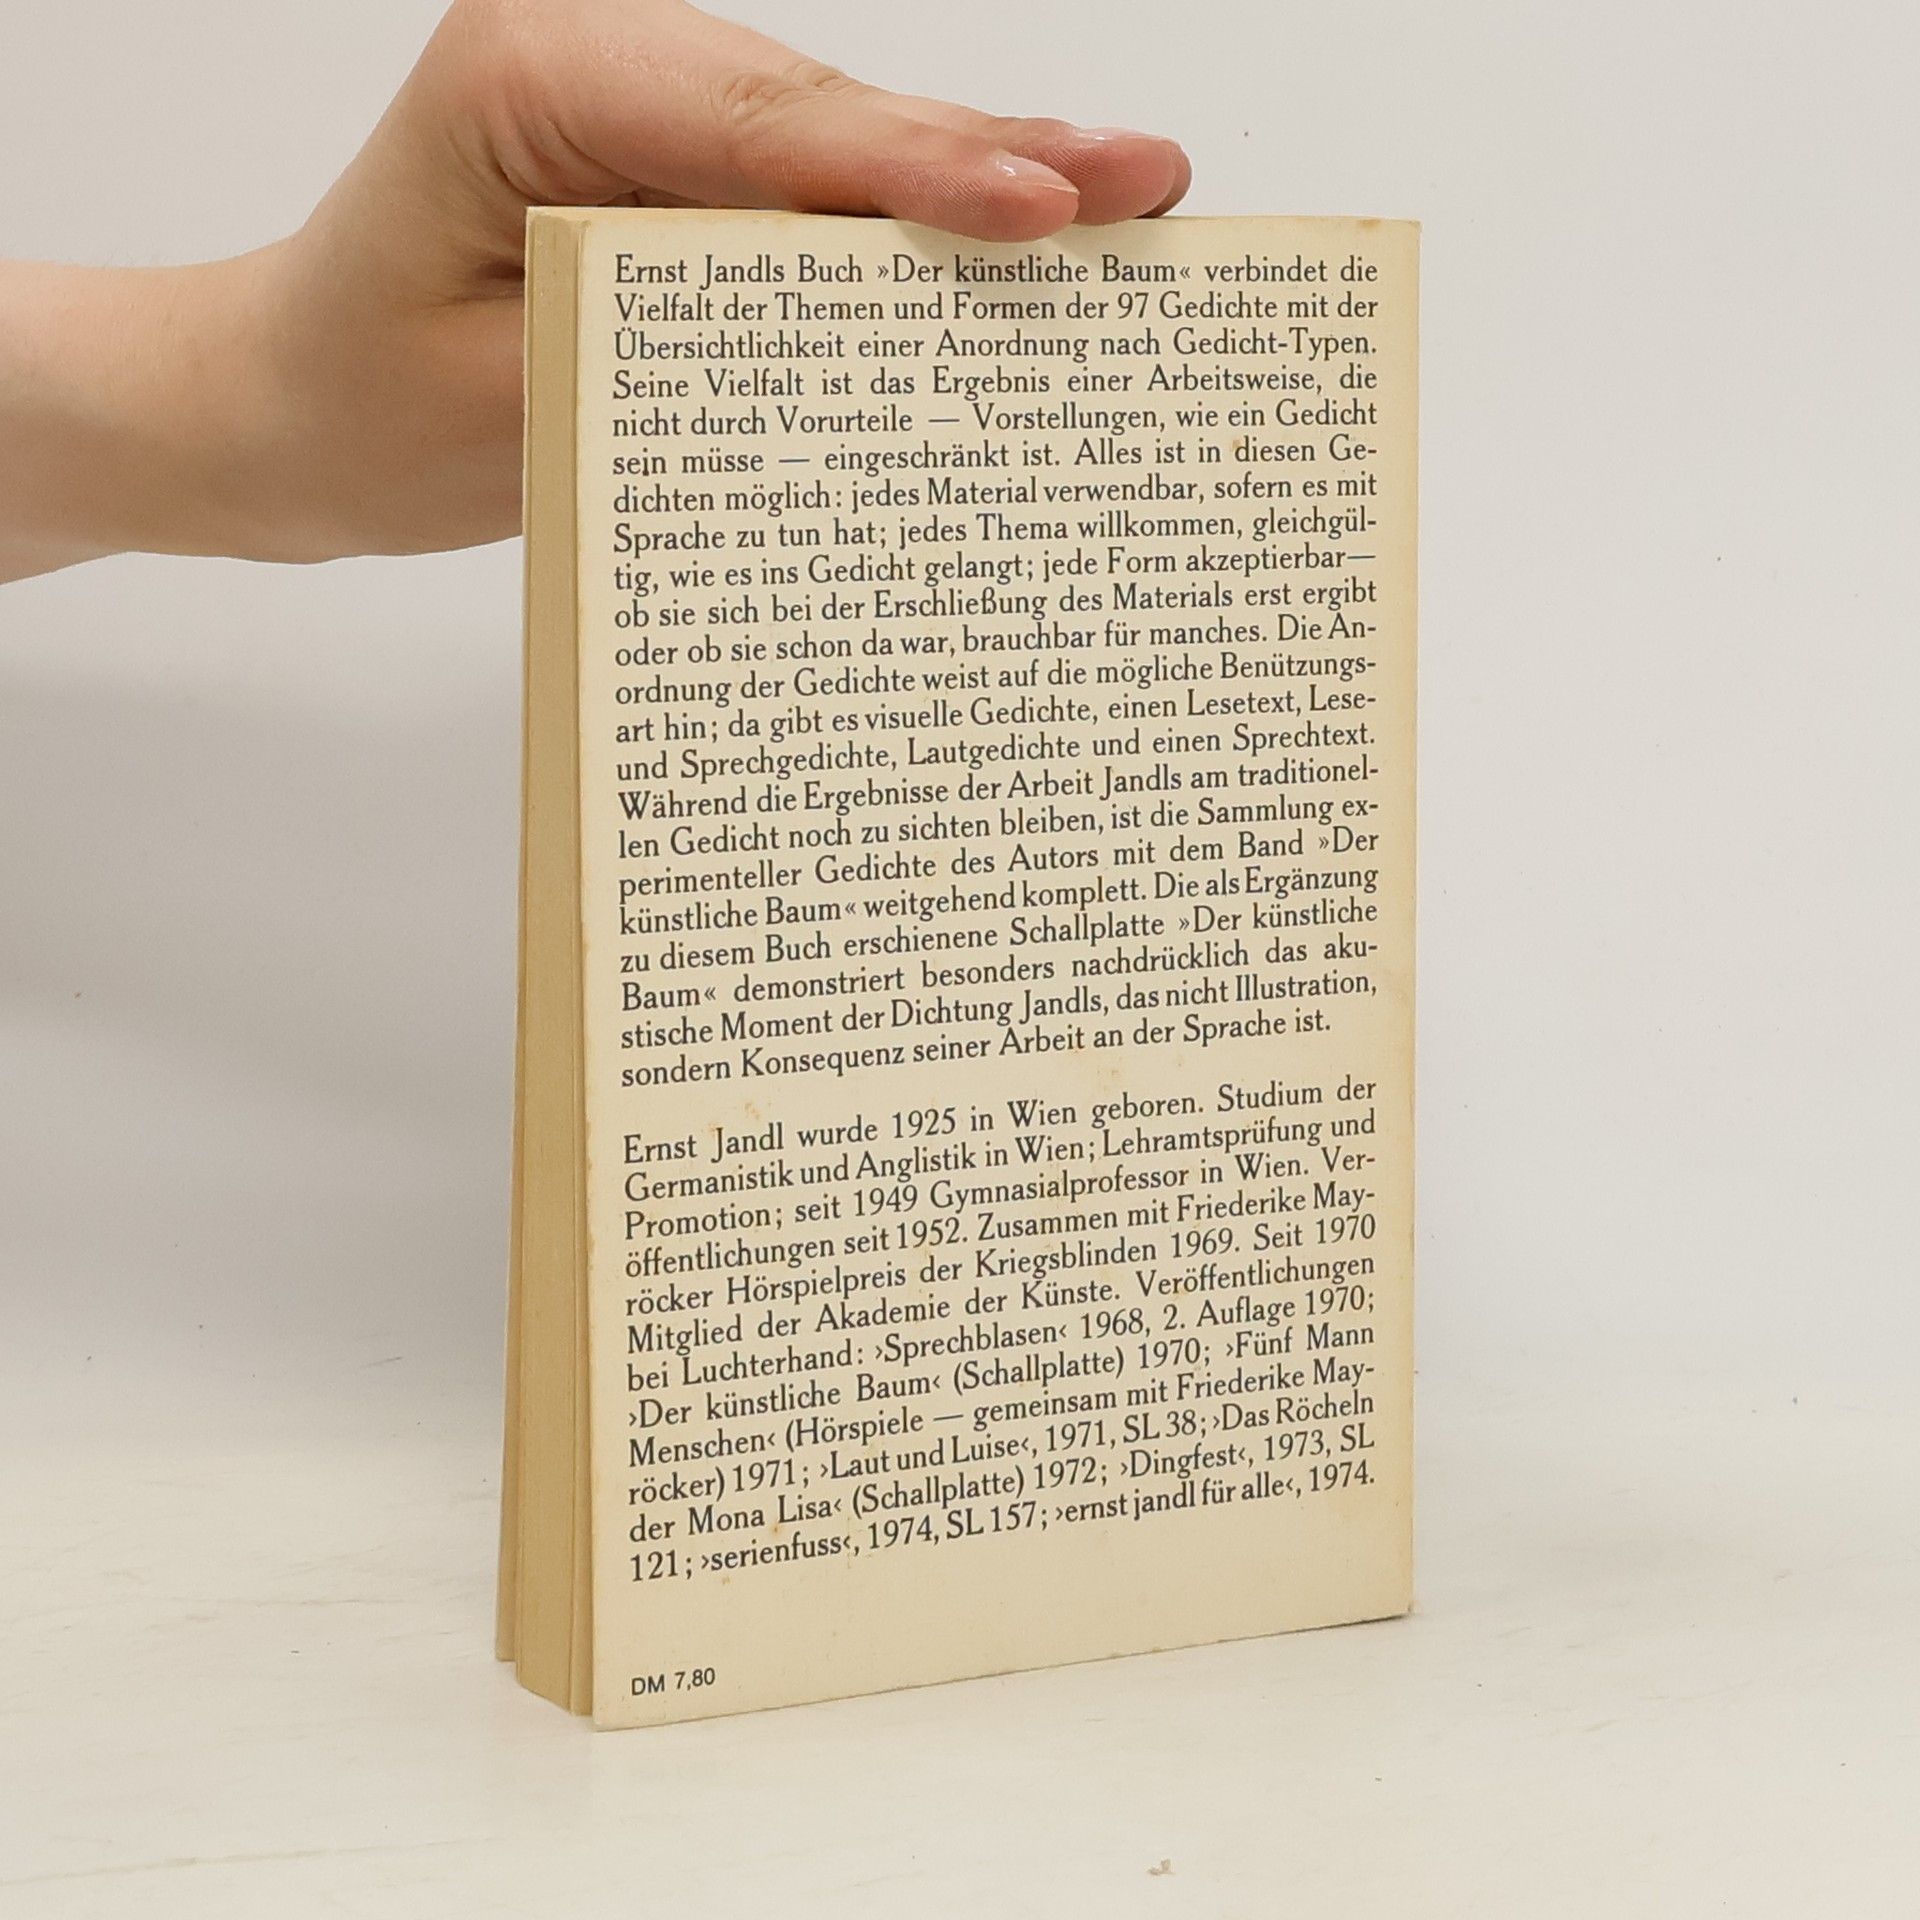 Ernst Jandls Buch »Der künstliche Baum« verbindet die
Vielfalt der Themen und Formen der 97 Gedichte mit der
Übersichtlichkeit einer Anordnung nach Gedicht-Typen.
Seine Vielfalt ist das Ergebnis einer Arbeitsweise, die
nicht durch Vorurteile — Vorstellungen, wie ein Gedicht
sein müsse — eingeschränkt ist. Alles ist in diesen Ge-
dichten möglich: jedes Material verwendbar, sofern es mit
Sprache zu tun hat; jedes Thema willkommen, gleichgül-
tig, wie es ins Gedicht gelangt; jede Form akzeptierbar—
ob sie sich bei der Erschließung des Materials erst ergibt
oder ob sie schon da war, brauchbar für manches. Die An-
ordnung der Gedichte weist auf die mögliche Benützungs-
art hin; da gibt es visuelle Gedichte, einen Lesetext, Lese-
und Sprechgedichte, Lautgedichte und einen Sprechtext.
Während die Ergebnisse der Arbeit Jandls am traditionel-
len Gedicht noch zu sichten bleiben, ist die Sammlung ex-
perimenteller Gedichte des Autors mit dem Band »Der
künstliche Baum« weitgehend komplett. Die als Ergänzung
zu diesem Buch erschienene Schallplatte »Der künstliche
Baum« demonstriert besonders nachdrücklich das aku-
stische Moment der Dichtung Jandls, das nicht Illustration,
sondern Konsequenz seiner Arbeit an der Sprache ist.
Ernst Jandl wurde 1925 in Wien geboren. Studium der
Germanistik und Anglistik in Wien; Lehramtsprüfung und
Promotion; seit 1949 Gymnasialprofessor in Wien. Ver-
öffentlichungen seit 1952. Zusammen mit Friederike May-
röcker Hörspielpreis der Kriegsblinden 1969. Seit 1970
Mitglied der Akademie der Künste. Veröffentlichungen
bei Luchterhand: ›Sprechblasen‹ 1968, 2. Auflage 1970;
›Der künstliche Baum‹ (Schallplatte) 1970; ›Fünf Mann
Menschen‹ (Hörspiele — gemeinsam mit Friederike May-
röcker) 1971; ›Laut und Luise‹, 1971, SL 38; ›Das Röcheln
der Mona Lisa‹ (Schallplatte) 1972; ›Dingfest‹, 1973, SL
121; ›serienfuss‹, 1974, SL 157; ›ernst jandl für alle‹, 1974.
DM 7,80